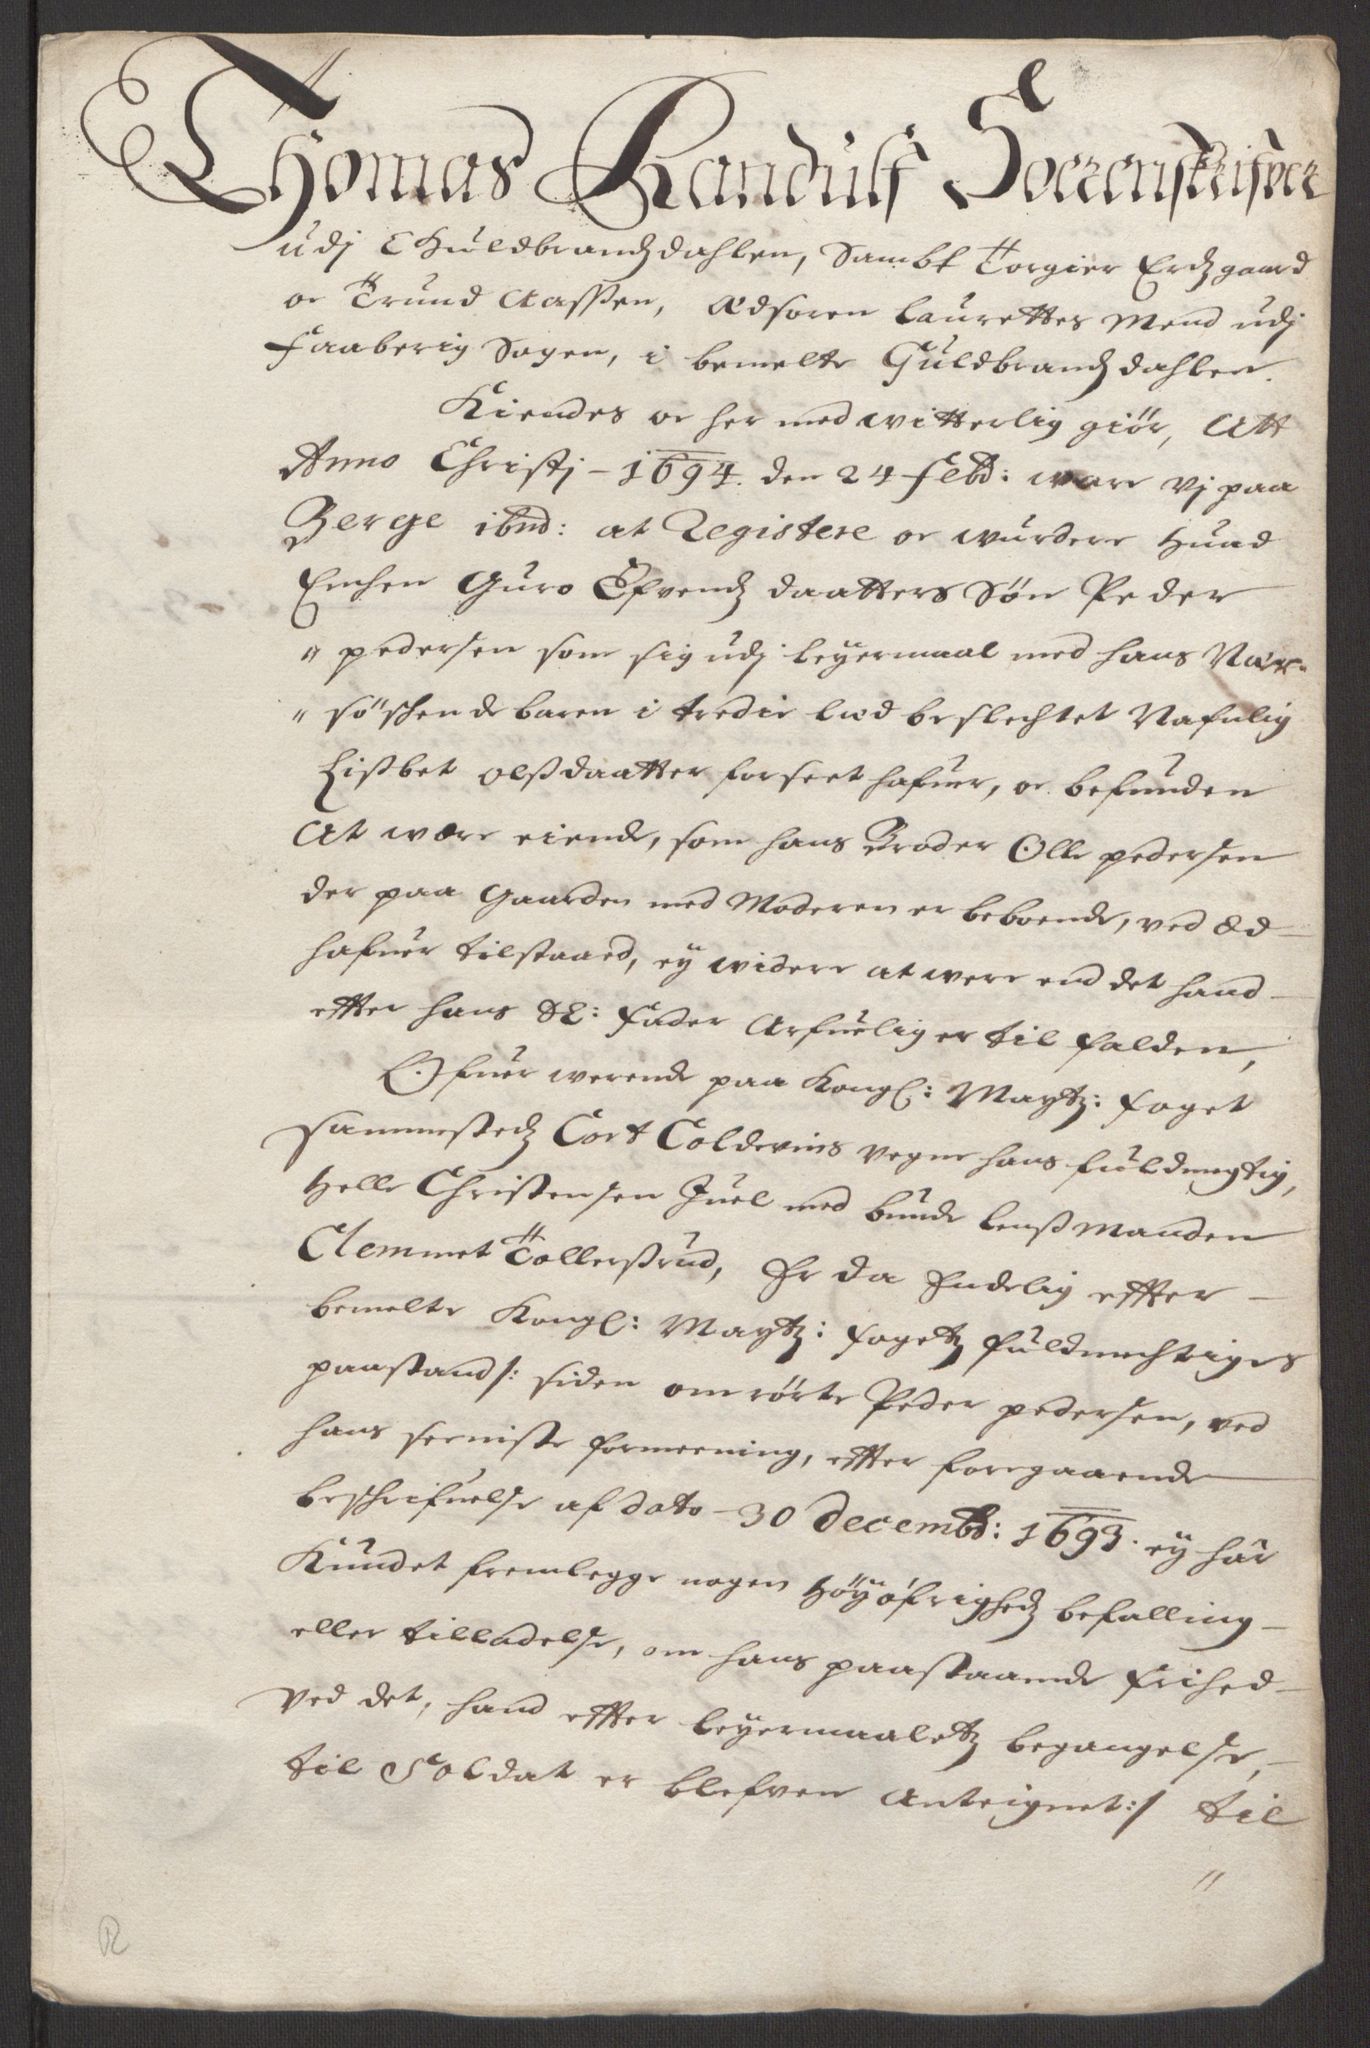 Thomas Randulf Soerenskrifver
udj Guldbrandzdahlen, Sambt Torgier Erdzgaard
oc Trund Aassen, Ædsoren Laurettes Mend udj
Faaberig Sogen, i bemelte Guldbrandzdahlen.
Kiendes oc her med witterlig giör, Att
Anno Christj - 1694. den 24 Febr: ware vj paa
Berge ibnd: at Registere oc wurdere huad
Enchen Guro Efvendz daatters Sön Peder
" pedersen som sig udj leyermaal med hans Nær-
" söschende baren i tredie læd beslechtet Nafnlig
Lißbet olßdaatter forseet hafuer, oc befunden
At være eiende, som hans Broder Olle pedersen
der paa Gaarden med Moderen er beboende, ved Æd
hafuer tilstaaed, ey widere at were end det hand
effter hans Sl: Fader Arfuelig er til falden,
Ofuer werende paa Kongl: Maytz: foget
sammestedz Cort Coldevins vegne hans fuldmegtig,
Helle Christensen Juel med bunde lenßmanden
Clemmet Tollerßrud, Er da Endelig effter
bemelte Kongl: Maytz: fogetz fuldmechtiges
paastand /: siden omrörte Peder pedersen, ved
hans seeniste formeening, effter foregaaende
beschrifuelse af dato - 30 decembr: 1693. ey har
Kundet fremlegge nogen höyöfrighedz befalling
eller tilladelse, om hans paastaaende frihed
ved det, hand effter leyermaaletz begangelse,
til Soldat er blefven Anteignet :/ til
"
R